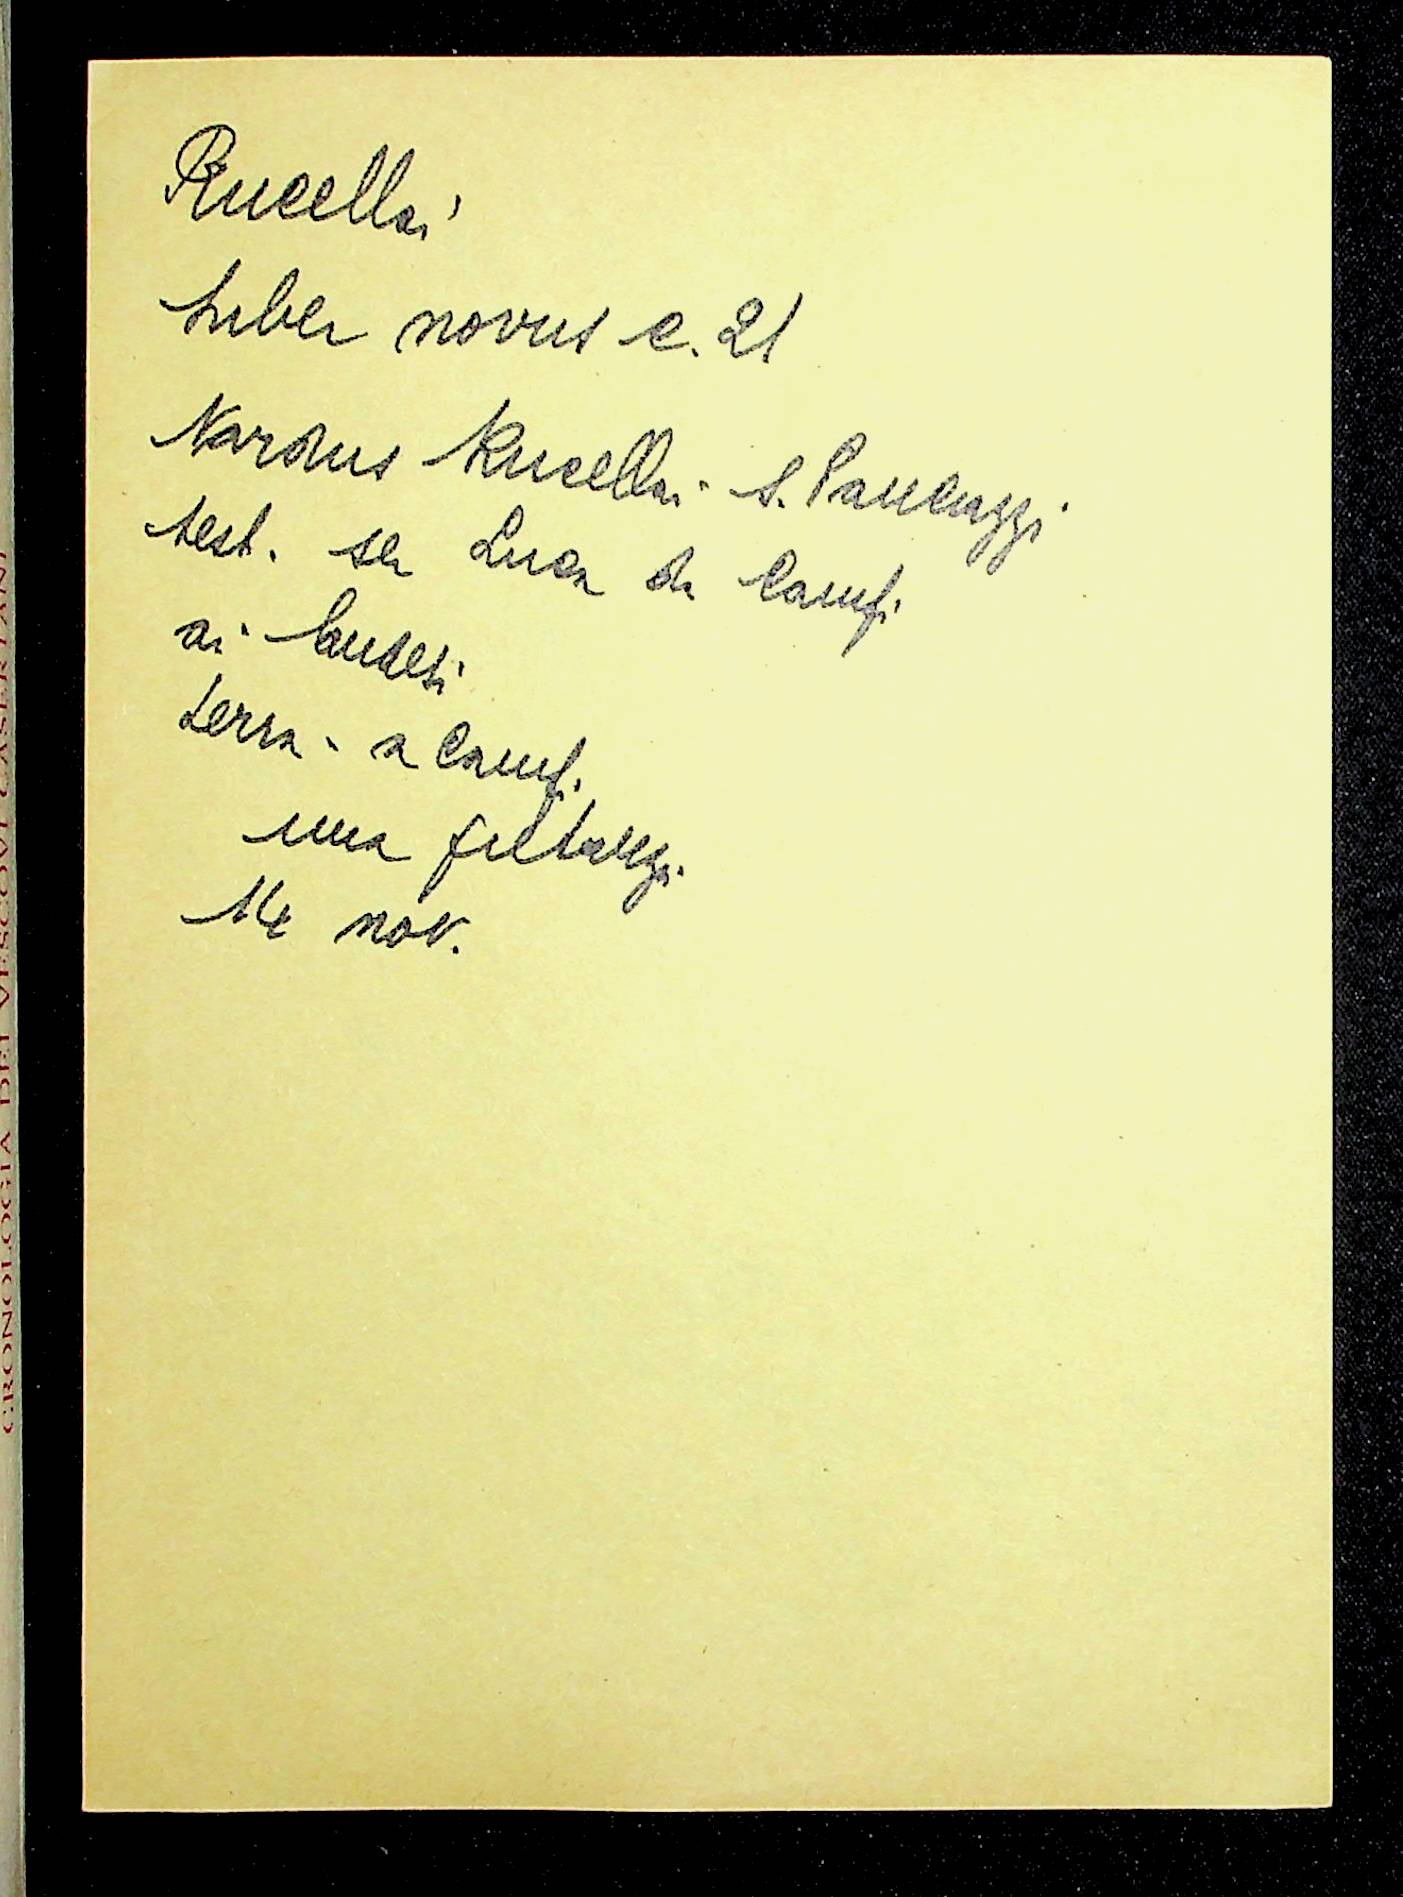 Rucellai
Liber novus c. 21
Nardus Rucellai - S. Pancrazzi
test. ser Luca di Campi
ai Laudesi
terra - a Campi
una pietanza
14 nov.
CRONOLOGIA DEI VESCOVI CASERTANI